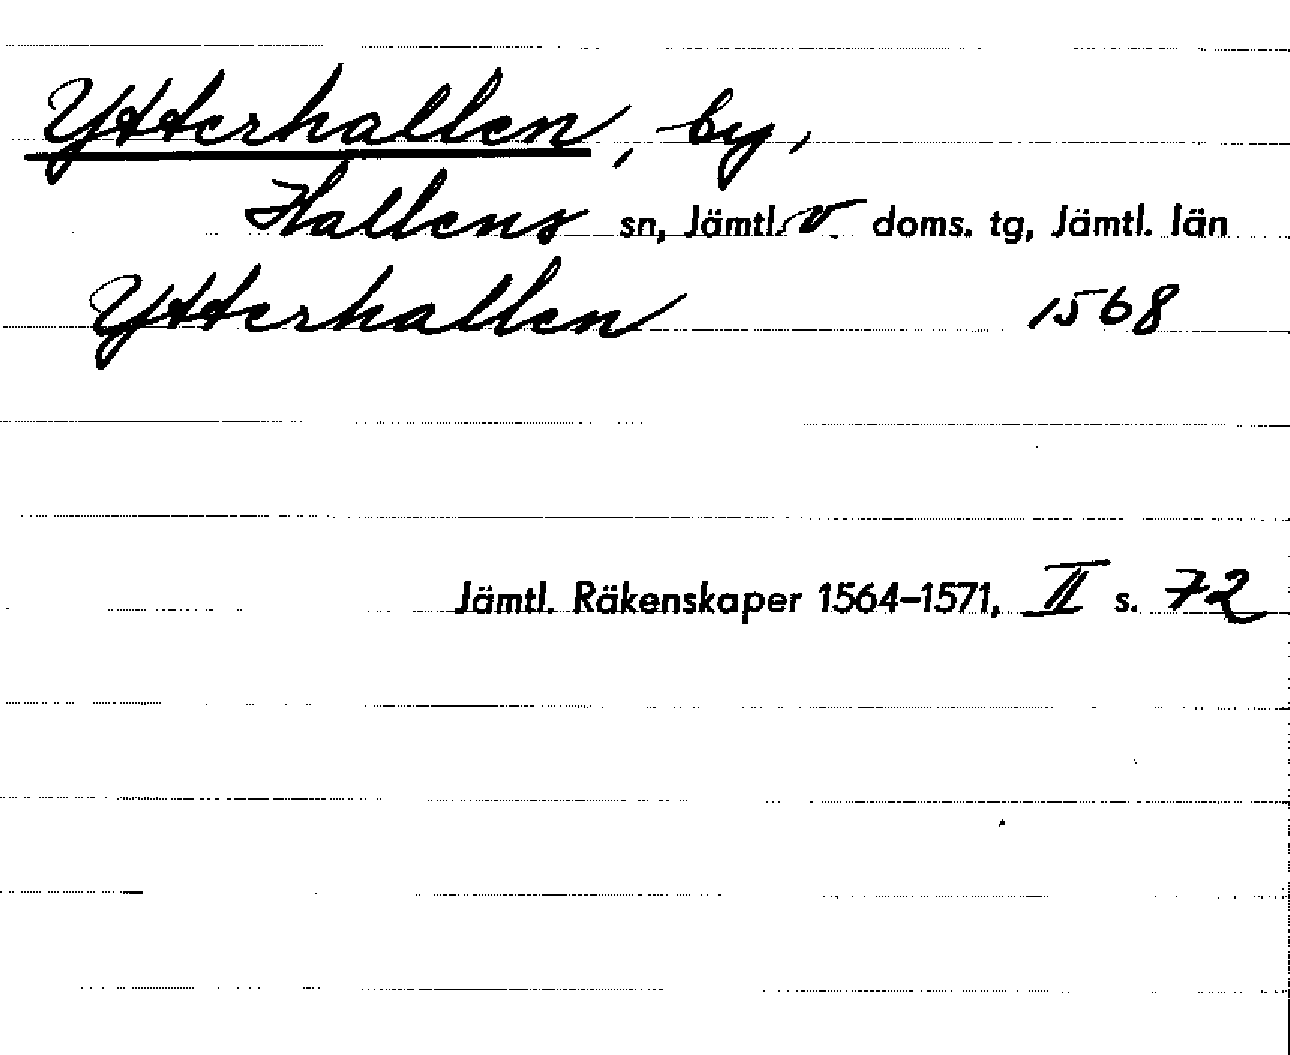 Ytterhallen, by,
Hallens sn, Jämtl. v. doms. tg, Jämtl. län
Ytterhallen 1568
Jämtl. Räkenskaper 1564-1571, II s. 72